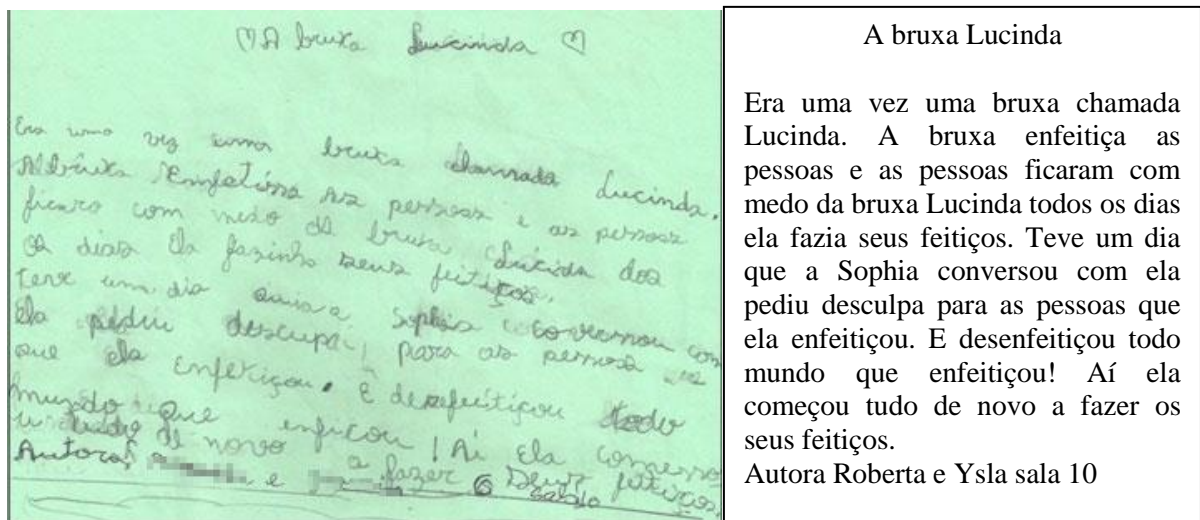 A bruxa Lucinda
Era uma vez uma bruxa chamada Lucinda.
A bruxa as pessoas e as pessoas
ficaro com medo da bruxa Lucinda
os dias ela seus feitiços.
Teve um dia a Sophia com
Ela pediu descupa, para as pessoas
que ela enfetiçou. E desefeitiçou todo
mundo que enficou! Aí ela comesso
tudo de novo a fazer o seus feitiços
Autora e
A bruxa Lucinda
Era uma vez uma bruxa chamada
Lucinda. A bruxa enfeitiça as
pessoas e as pessoas ficaram com
medo da bruxa Lucinda todos os dias
ela fazia seus feitiços. Teve um dia
que a Sophia conversou com ela
pediu desculpa para as pessoas que
ela enfeitiçou. E desenfeitiçou todo
mundo que enfeitiçou! Aí ela
começou tudo de novo a fazer os
seus feitiços.
Autora Roberta e Ysla sala 10